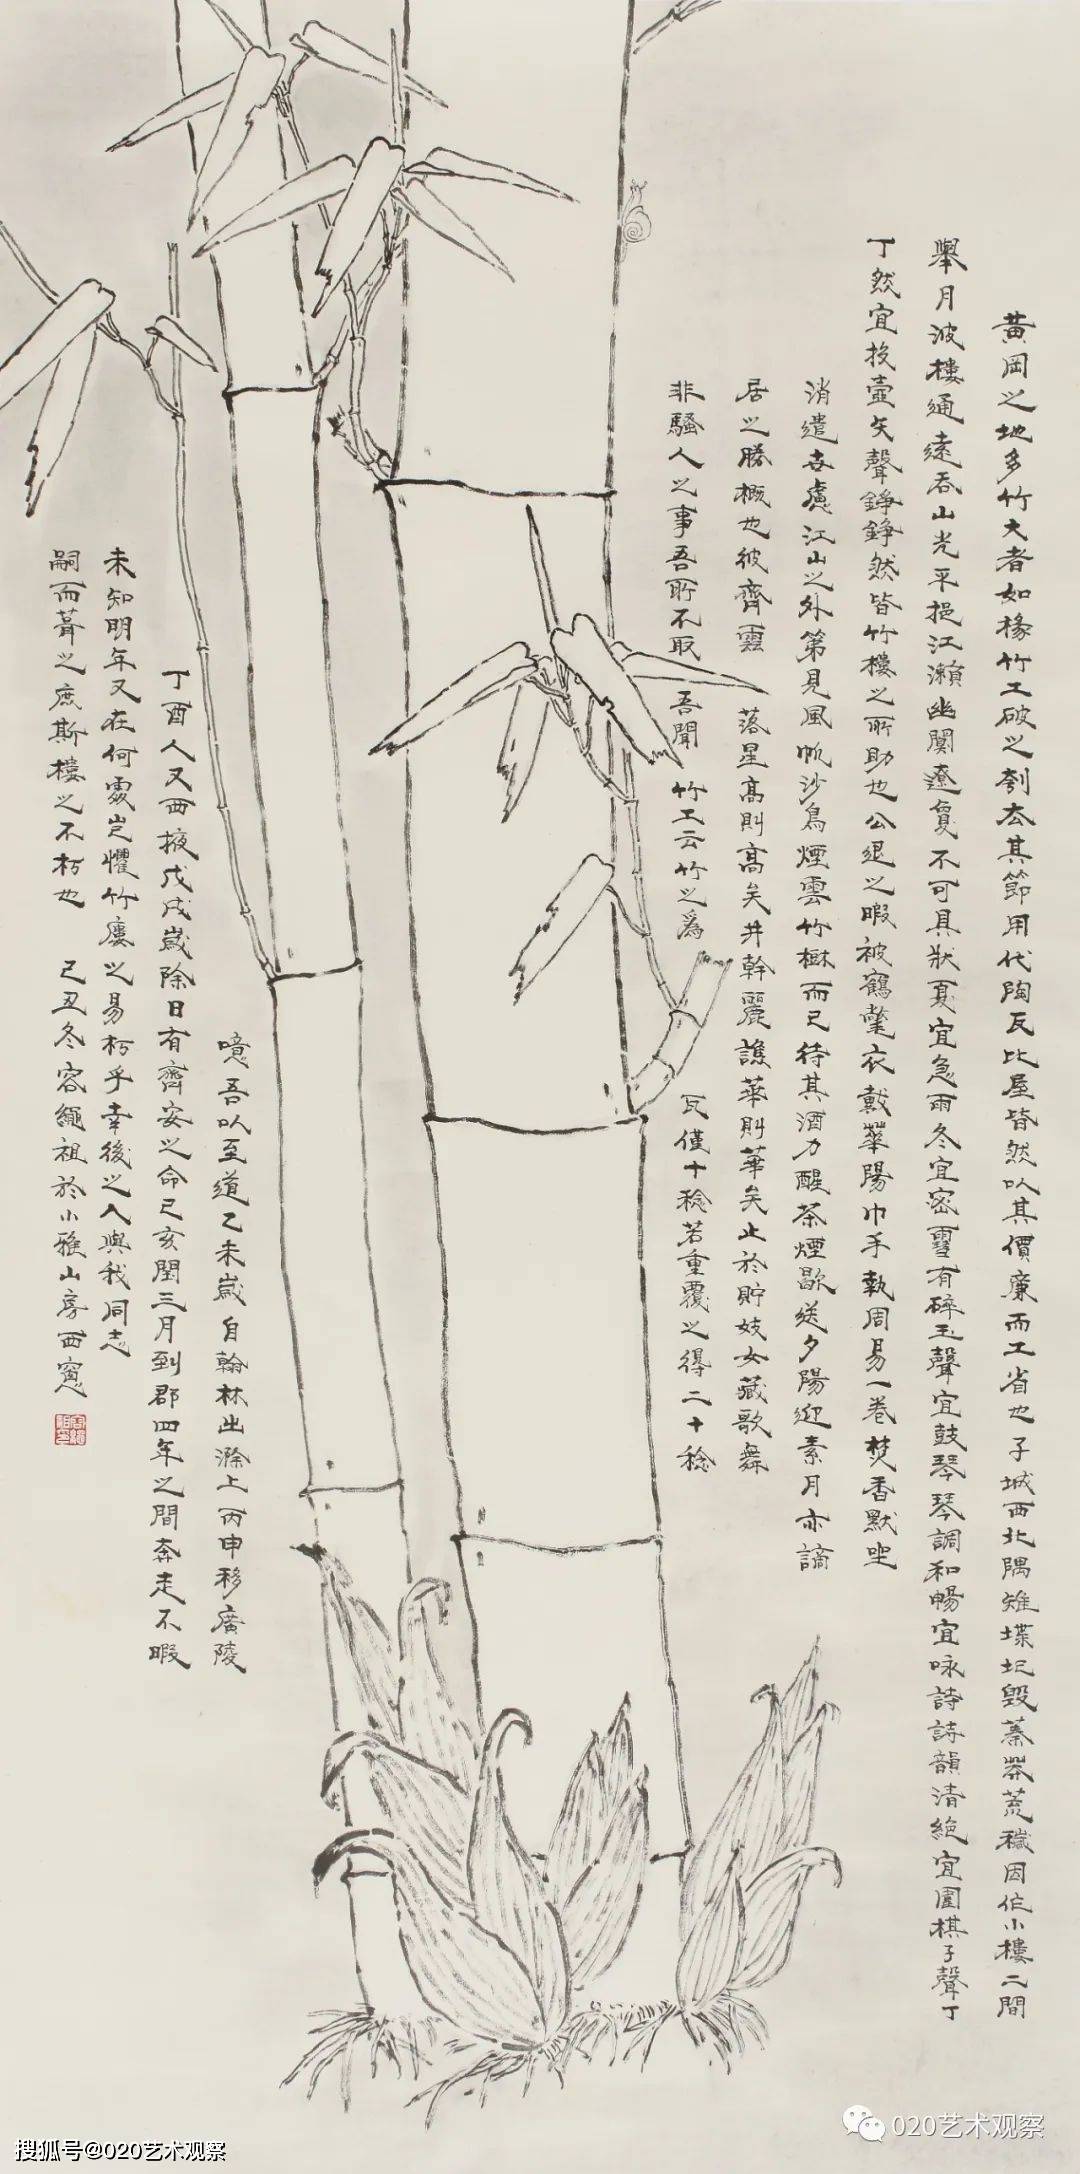 黃岡之地多竹大者如椽竹工破之刳去其節用代陶瓦比屋皆然以其價廉而工省也子城西北隅雉堞圮毀蓁莽荒穢因作小樓二間
與月波樓通遠吞山光平挹江瀨幽闃遼夐不可具狀夏宜急雨冬宜密雪有碎玉聲宜鼓琴琴調和暢宜咏詩詩韻清絕宜圍棋子聲丁
丁然宜投壺矢聲錚錚然皆竹樓之所助也公退之暇被鶴氅衣戴華陽巾手執周易一卷焚香默坐
消遣世慮江山之外第見風帆沙鳥煙雲竹樹而已待其酒力醒茶煙歇送夕陽迎素月亦謫
居之勝概也彼齊雲 落星高則高矣井幹麗譙華則華矣止於貯妓女藏歌舞
非騷人之事吾所不取 吾聞 竹工云竹之爲 瓦僅十稔若重覆之得二十稔
噫吾以至道乙未歲自翰林出滁上丙申移廣陵
丁酉入又西掖戊戌歲除日有齊安之命己亥閏三月到郡四年之間奔走不暇
未知明年又在何處豈懼竹廔之易朽乎幸後之人與我同志
嗣而葺之庶斯樓之不朽也 己丑冬容繩祖於小雅山房西窗
020艺术观察
搜狐号@020艺术观察